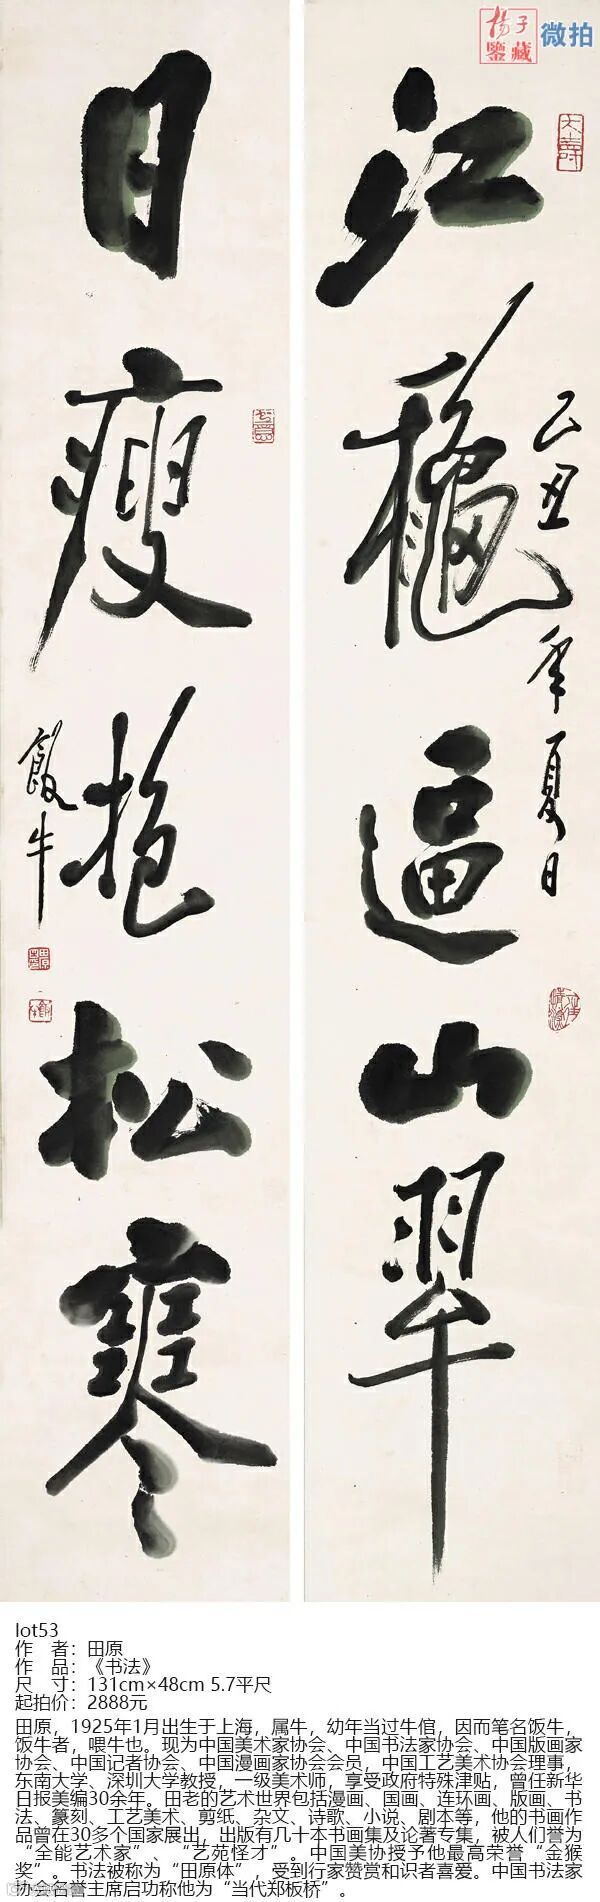 楊子
鑒藏
微拍
大壽
江穐逼山翠
乙丑年夏日
日瘦抱松寒
飯牛
lot53
作 者：田原
作 品：《书法》
尺 寸：131cm×48cm 5.7平尺
起拍价：2888元
田原，1925年1月出生于上海，属牛，幼年当过牛倌，因而笔名饭牛，
饭牛者，喂牛也。现为中国美术家协会、中国书法家协会、中国版画家
协会、中国记者协会、中国漫画家协会会员，中国工艺美术协会理事，
东南大学、深圳大学教授，一级美术师，享受政府特殊津贴，曾任新华
日报美编30余年。田老的艺术世界包括漫画、国画、连环画、版画、书
法、篆刻、工艺美术、剪纸、杂文、诗歌、小说、剧本等，他的书画作
品曾在30多个国家展出，出版有几十本书画集及论著专集，被人们誉为
“全能艺术家”、“艺苑怪才”。中国美协授予他最高荣誉“金猴
奖”。书法被称为“田原体”，受到行家赞赏和识者喜爱。中国书法家
协会名誉主席启功称他为“当代郑板桥”。